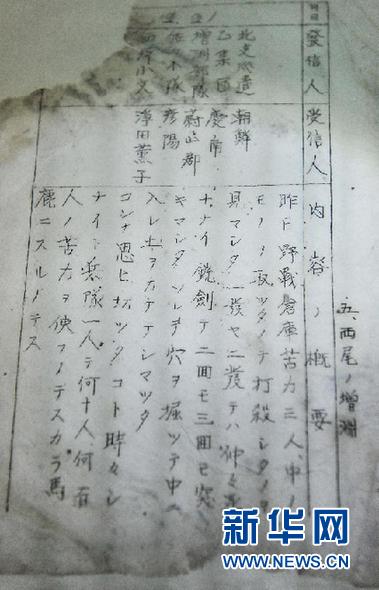 五、西尾ノ増淵
月日
發信人
受信人
内容ノ概要
北支派遣
乙集団
増淵部隊
佐々木隊
小文
朝鮮
慶南
蔚山郡
彦陽
澤田薫子
昨日野戦倉庫苦力三人、中ノ
モノヲ取ツタノデ打殺シタノヲ
見マシタ、一發ヤ二發デハ仲々死
ナナイ銃劍デ二回モ三回モ突
キマシタソレヲ穴ヲ掘ツテ中ヘ
入レ土ヲカケテシマツタ
コンナ思ヒ切ツタコト時々シ
ナイト兵隊一人デ何十人、何百
人ノ苦力ヲ使フノデスカラ馬
鹿ニスルノデス
新华网
WWW.NEWS.CN